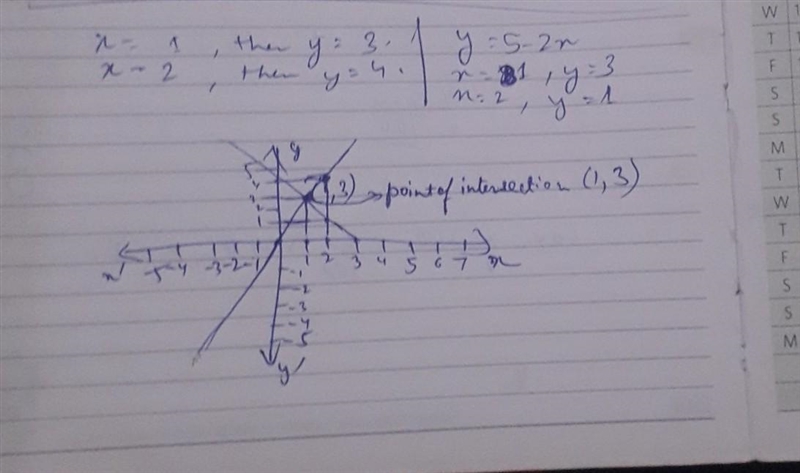 x = 1, then y = 3.
x = 2, then y = 4.
y = 5 - 2x
x = 1, y = 3
x = 2, y = 1
y
5
4
3
2
1
, 3) → point of intersection (1, 3)
x' -5 -4 -3 -2 -1 1 2 3 4 5 6 7 x
-1
-2
-3
-4
-5
y'
W
T
F
S
S
M
T
W
T
F
S
S
M